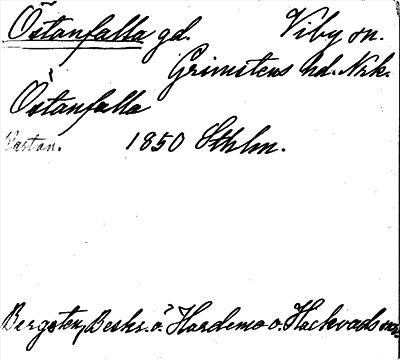 Östanfalla gd. Viby sn.
Grimstens hd. Nrk.
Östanfalla
1850 Sthlm.
Bergsten, Beskr. ö. Hardemo o. Hackvads snr